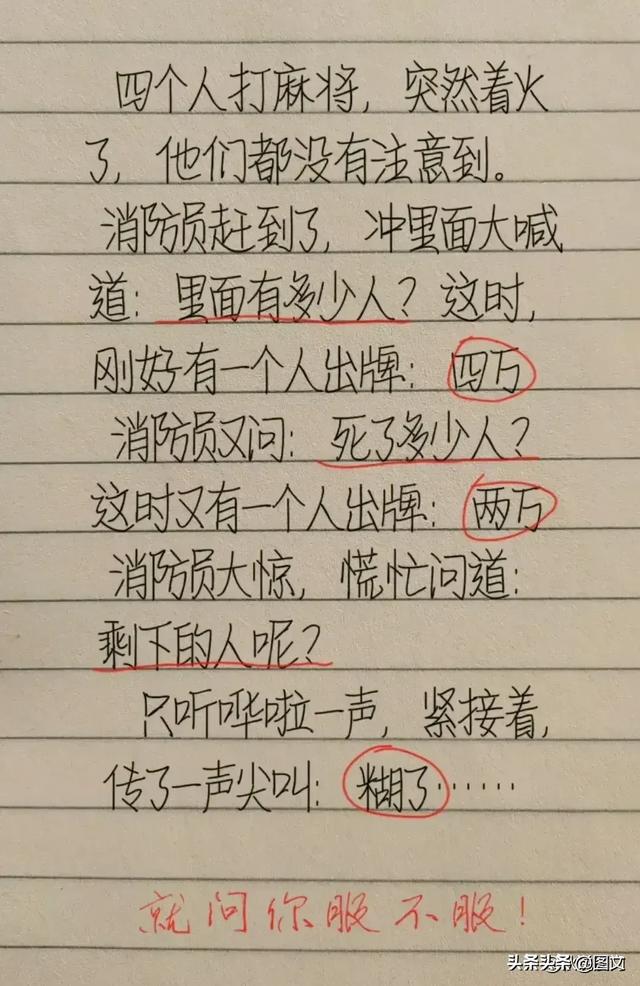 四个人打麻将，突然着火
了，他们都没有注意到。
消防员赶到了，冲里面大喊
道：里面有多少人？这时，
刚好有一个人出牌：四万
消防员又问：死了多少人？
这时又有一个人出牌：两万
消防员大惊，慌忙问道：
剩下的人呢？
只听哗啦一声，紧接着，
传了一声尖叫：糊了……
就问你服不服！
头条头条@图文